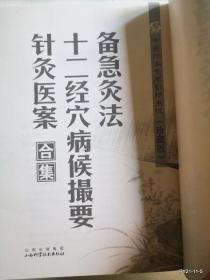 备急灸法
十二经穴病候撮要
针灸医案
合集
山西出版集团
山西科学技术出版社
2021-11-5